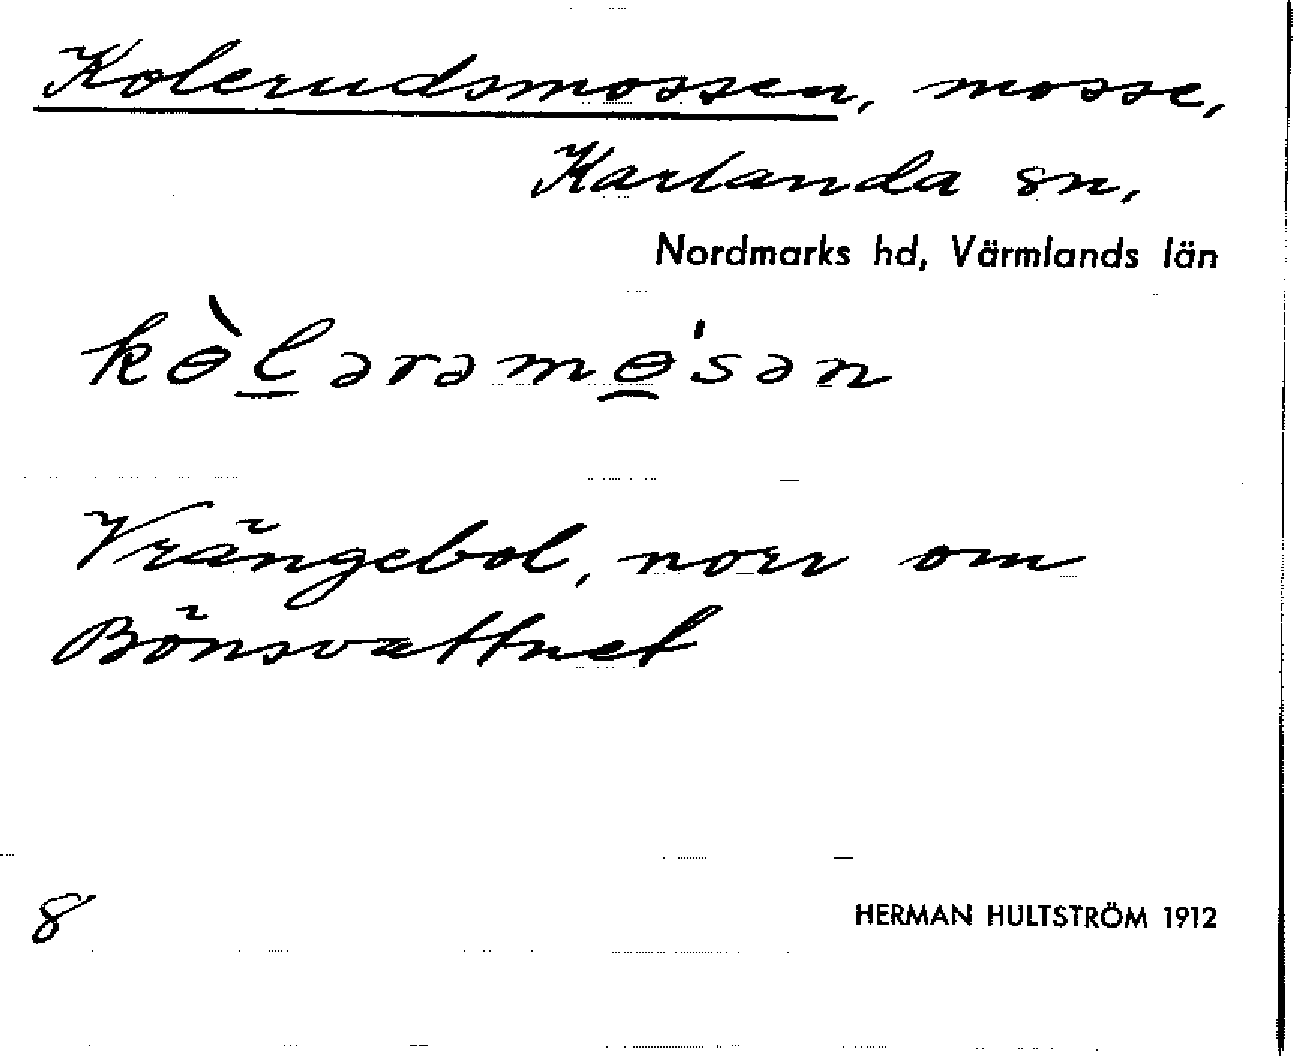 Kolerudsmossen, mosse,
Karlanda sn,
Nordmarks hd, Värmlands län
kɵ̀l̠ərəmɵ̠'sən
Vrängebol, norr om
Bönsvattnet
8
HERMAN HULTSTRÖM 1912